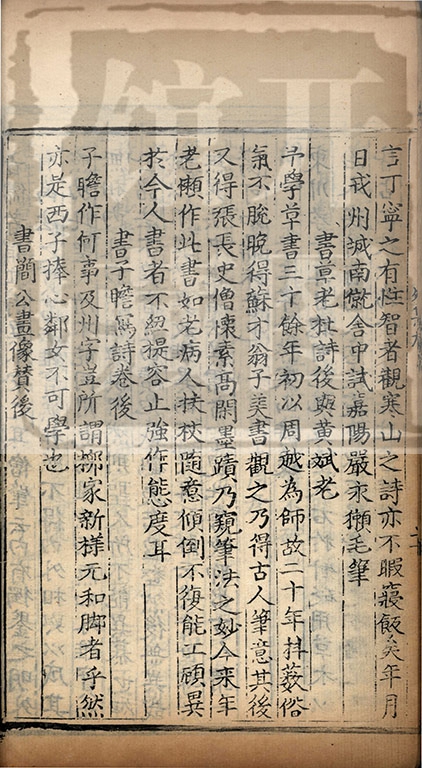 言丁寧之有性智者觀寒山之詩亦不暇寢飯矣年月
日戎州城南僦舍中試嘉陽嚴永獺毛筆
書草老杜詩後與黃斌老
予學草書三十餘年初以周越為師故二十年抖藪俗
氣不脫晚得蘇才翁子美書觀之乃得古人筆意其後
又得張長史僧懷素高閑墨蹟乃窺筆法之妙今來年
老懶作此書如老病人扶杖隨意傾倒不復能工顧異
於今人書者不紐提容止強作態度耳
書子瞻寫詩卷後
子瞻作何事及州字豈所謂柳家新様元和脚者乎然
亦是西子捧心鄰女不可學也
書簡公畫像贊後